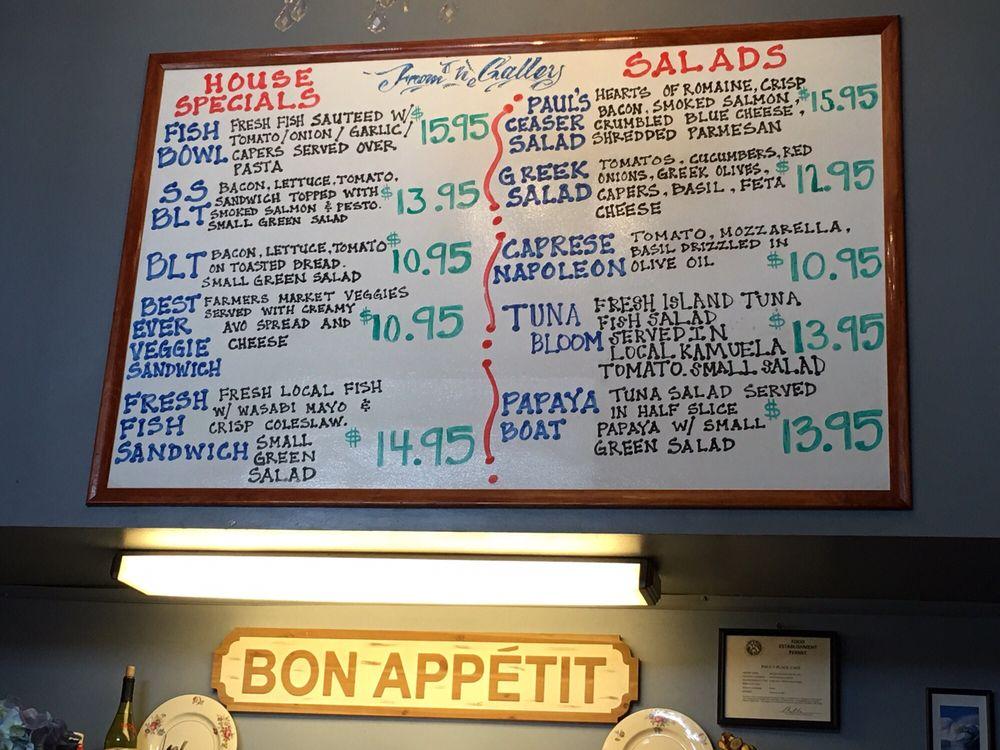 From Th' Galley
HOUSE
SPECIALS
FISH
BOWL
FRESH FISH SAUTEED W/
TOMATO/ONION/GARLIC/
CAPERS SERVED OVER
PASTA
$15.95
S.S
BLT
BACON, LETTUCE, TOMATO,
SANDWICH TOPPED WITH
SMOKED SALMON & PESTO.
SMALL GREEN SALAD
$13.95
BLT
BACON, LETTUCE, TOMATO
ON TOASTED BREAD.
SMALL GREEN SALAD
$10.95
BEST
EVER
VEGGIE
SANDWICH
FARMERS MARKET VEGGIES
SERVED WITH CREAMY
AVO SPREAD AND
CHEESE
$10.95
FRESH
FISH
SANDWICH
FRESH LOCAL FISH
W/ WASABI MAYO &
CRISP COLESLAW.
SMALL
GREEN
SALAD
$14.95
SALADS
PAUL'S
CEASER
SALAD
HEARTS OF ROMAINE, CRISP
BACON, SMOKED SALMON,
CRUMBLED BLUE CHEESE,
SHREDDED PARMESAN
$15.95
GREEK
SALAD
TOMATOS, CUCUMBERS, RED
ONIONS, GREEK OLIVES,
CAPERS, BASIL, FETA
CHEESE
$12.95
CAPRESE
NAPOLEON
TOMATO, MOZZARELLA,
BASIL DRIZZLED IN
OLIVE OIL
$10.95
TUNA
BLOOM
FRESH ISLAND TUNA
FISH SALAD
SERVED IN
LOCAL KAMUELA
TOMATO. SMALL SALAD
$13.95
PAPAYA
BOAT
TUNA SALAD SERVED
IN HALF SLICE
PAPAYA W/ SMALL
GREEN SALAD
$13.95
BON APPÉTIT
FOOD
ESTABLISHMENT
PERMIT
PAUL'S PLACE CAFE